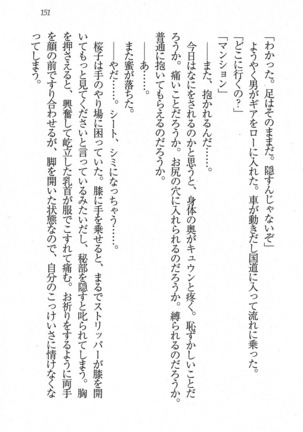 151
「わかった。足はそのままだ。隠すんじゃないぞ」
ようやく男がギアをローに入れた。車が動きだし国道に入って流れに乗った。
「どこに行くの？」
「マンション」
――また、抱かれるんだ……。
今日はなにをされるのかと思うと、身体の奥がキュウンと疼く。恥ずかしいことだ
ろうか。痛いことだろうか。お尻の穴に入れられるのだろうか。縛られるのだろうか。
普通に抱いてもらえるのだろうか。
――あ……。
また蜜が落ちた。
――やだ……。シート、シミになっちゃう……。
桜子は手のやり場に困っていた。膝に手を乗せると、まるでストリッパーが膝を開
いてもっと見てくださいと言っているみたいだし、秘部を隠すと叱られてしまう。胸
を押さえると、興奮して屹立した乳首が服でこすれて痛む。お祈りをするように両手
を顔の前ですり合わせるが、脚を開いた状態なので、自分のこっけいさに情けなくな
ってしまう。